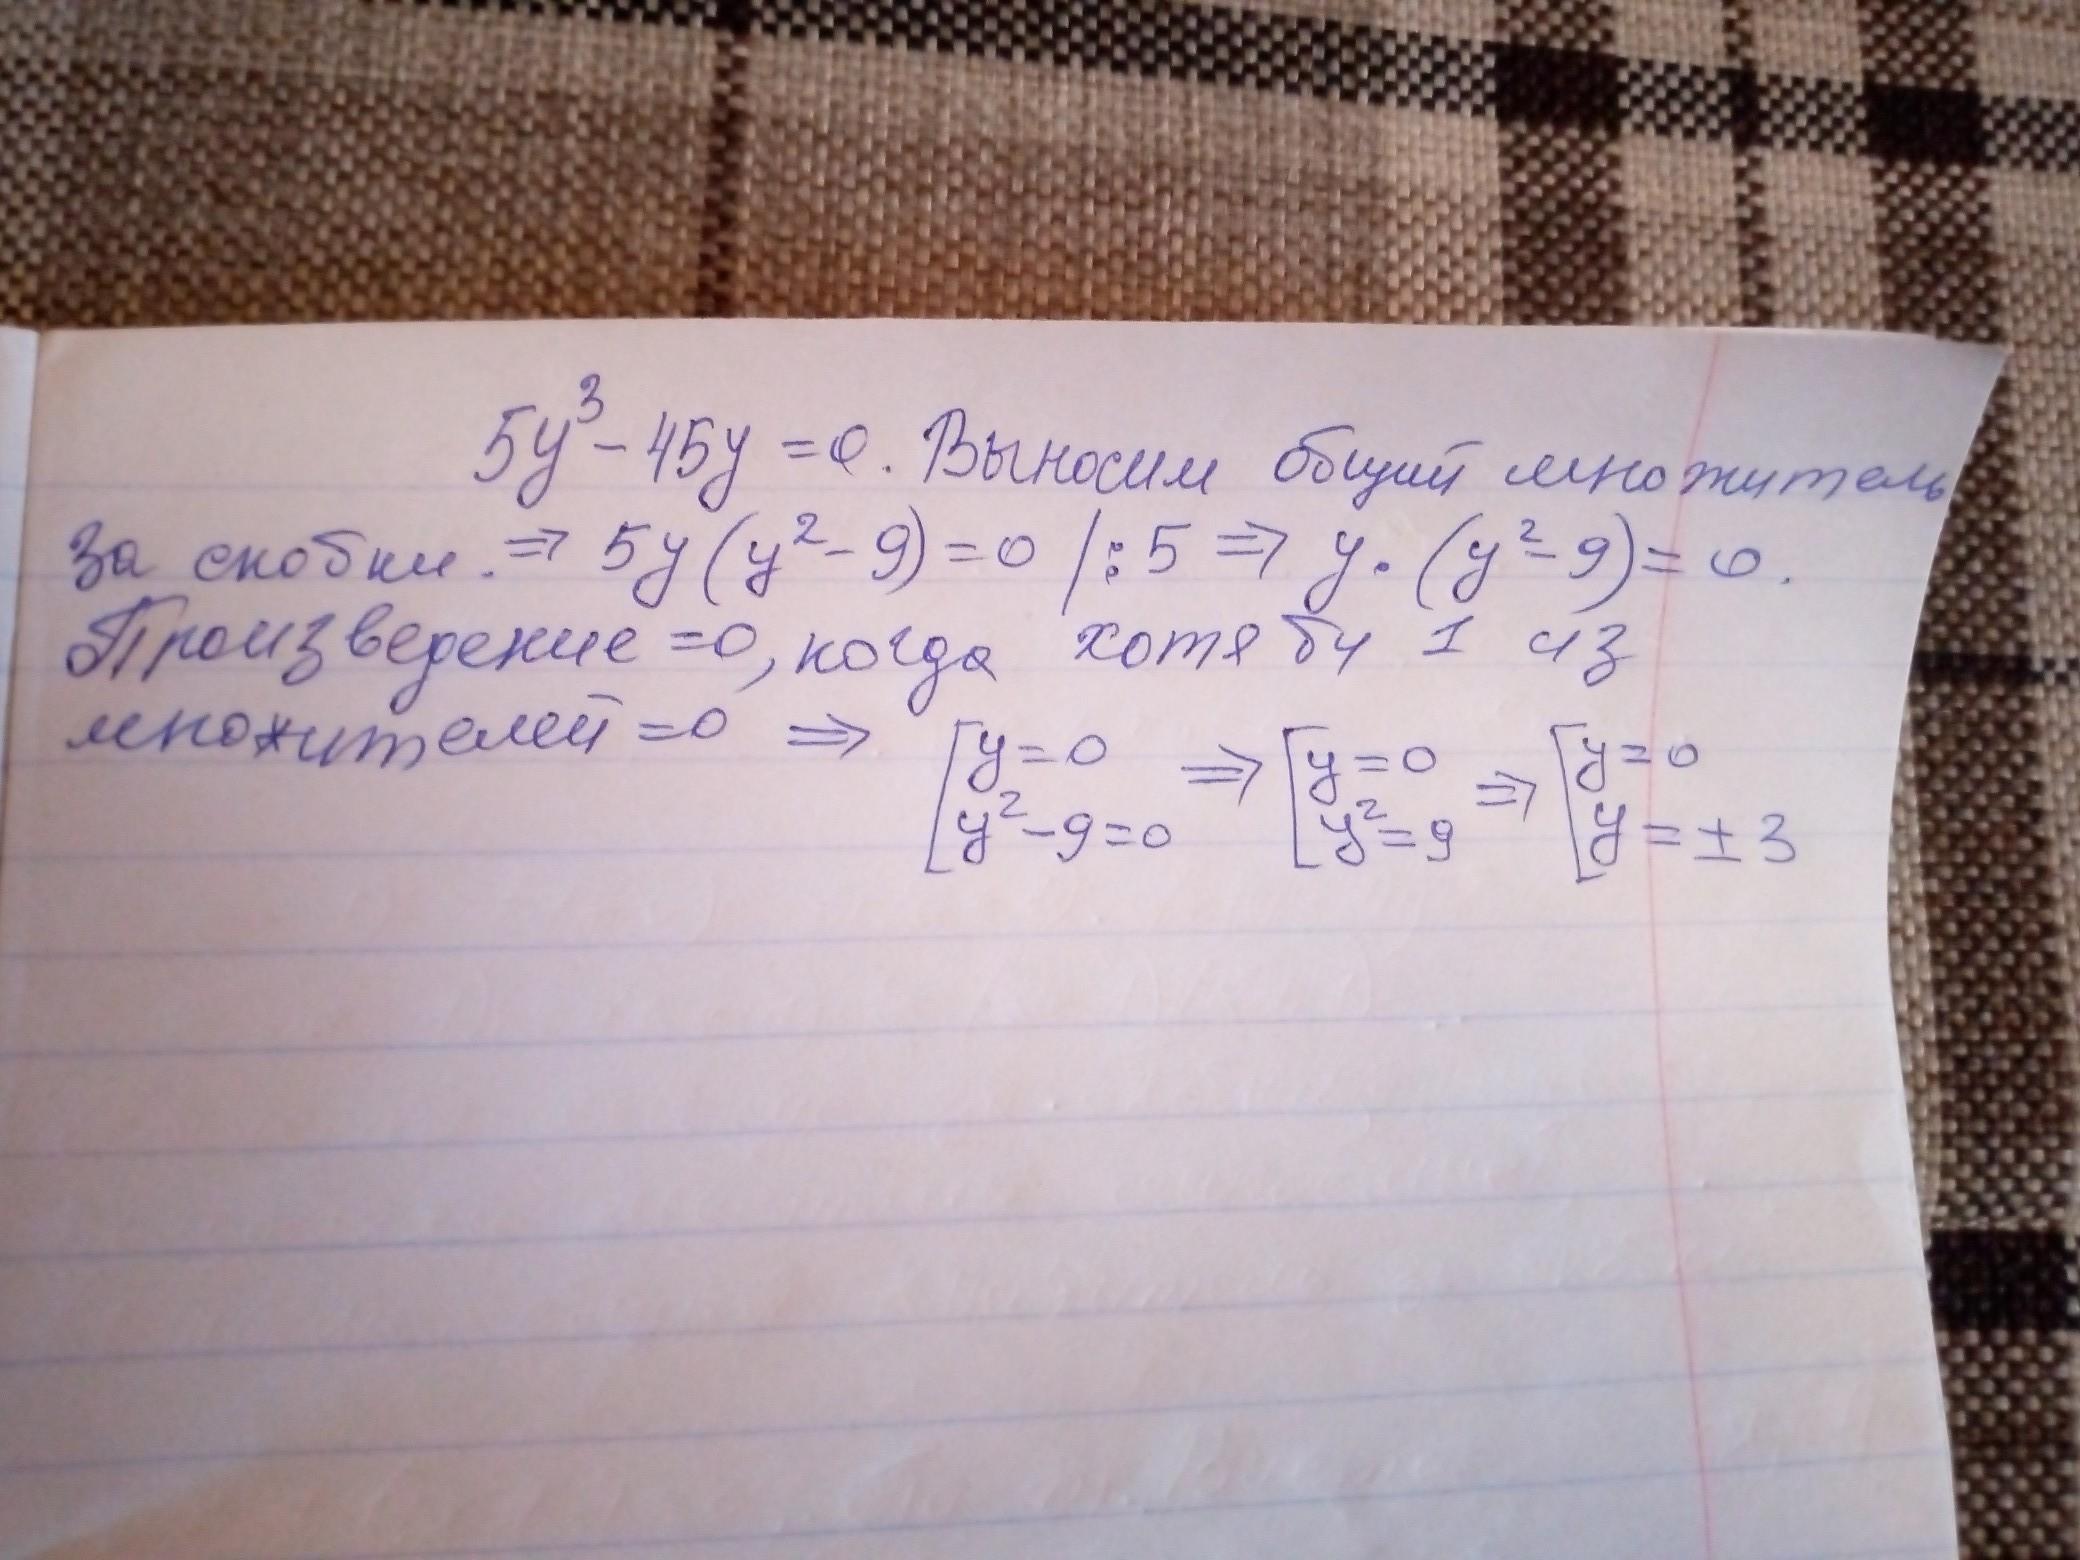 5y³ - 45y = 0. Выносим общий множитель
за скобки. ⇒ 5y(y² - 9) = 0 |:5 ⇒ y·(y² - 9) = 0.
Произведение =0, когда хотя бы 1 из
множителей =0 ⇒ [y=0 ⇒ [y=0 ⇒ [y=0
y² - 9 = 0 y² = 9 y = ± 3